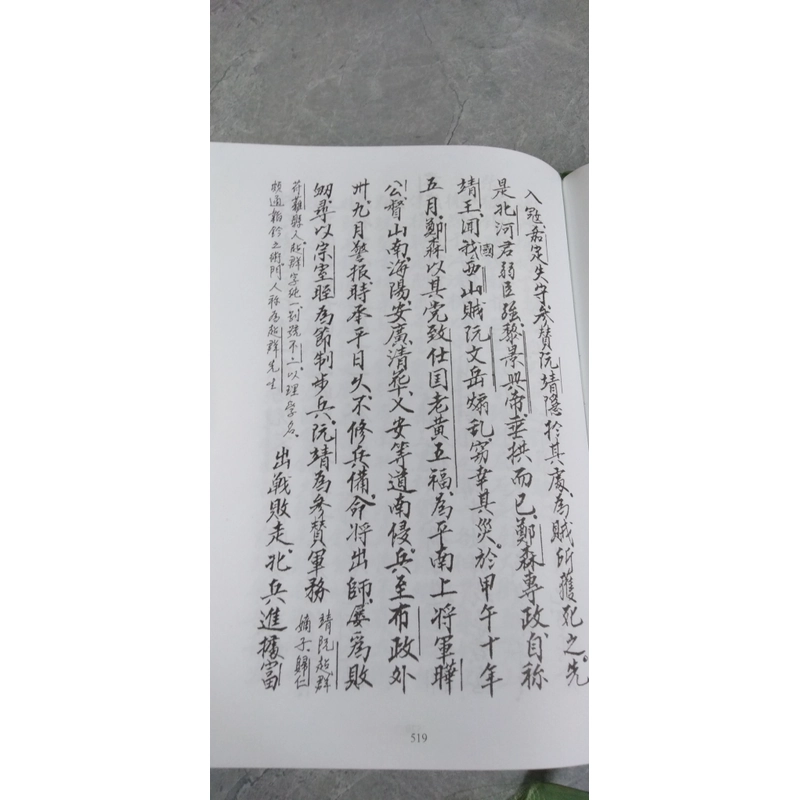 入寇君定失守参賛阮靖隱於其處為賊所獲死之先
是北河君弱臣強黎景興帝垂拱而已鄭森專政自称
靖王闻我國西山賊阮文岳煽乱窃幸其災於甲午十年
五月鄭森以其党致仕国老黄五福為平南上將軍曄
公督山南海陽安廣清華乂安等道南侵兵至布政外
卅九月警报時承平日久不修兵備命将出師屡為敗
衂尋以宗室眰為節制步兵阮靖為参賛軍務
靖阮超群
嫡子歸仁
符離縣人超群字純一别號不二以理學名
頻通韜鈐之術門人称為超群先生
出戰敗走北兵進據富
519